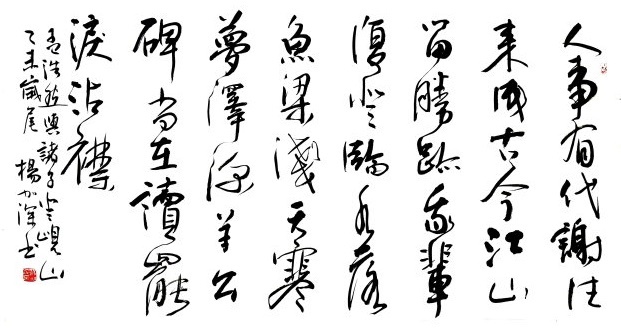 人事有代謝往
来成古今江山
留勝跡我輩
復登臨水落
魚梁淺天寒
夢澤深羊公
碑尚在讀罷
淚沾襟
孟浩然與諸子登峴山
乙未歲尾 楊加深书